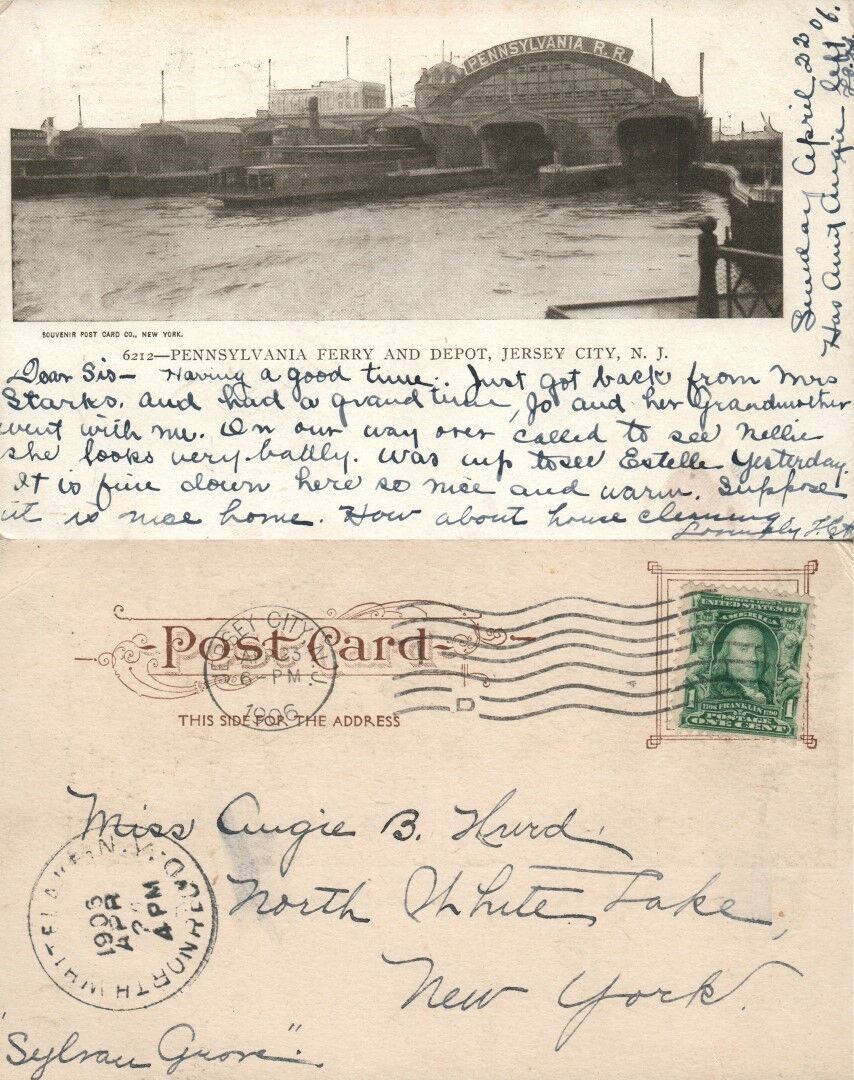 PENNSYLVANIA R.R.
Sunday April 22 06.
Has Aunt Angie left
SOUVENIR POST CARD CO., NEW YORK.
6212—PENNSYLVANIA FERRY AND DEPOT, JERSEY CITY, N. J.
Dear Sis— Having a good time. Just got back from Mrs
Starks. and had a grand time, Jo and her Grandmother
went with me. On our way over called to see Nellie
she looks very badly. Was up to see Estelle yesterday.
It is fine down here so nice and warm. Suppose
it is nice home. How about house cleaning
Lovingly
Post Card
JERSEY CITY, N.J.
APR 23
6-PM
1906
D
THIS SIDE FOR THE ADDRESS
SERIES 1902
UNITED STATES OF
AMERICA
1706 FRANKLIN 1790
POSTAGE
1 ONE CENT 1
Miss Augie B. Hurd.
North White Lake,
New York.
NORTH WHITE LAKE N.Y.
REC'D.
1906
APR
4 PM
"Sylvan Grove".